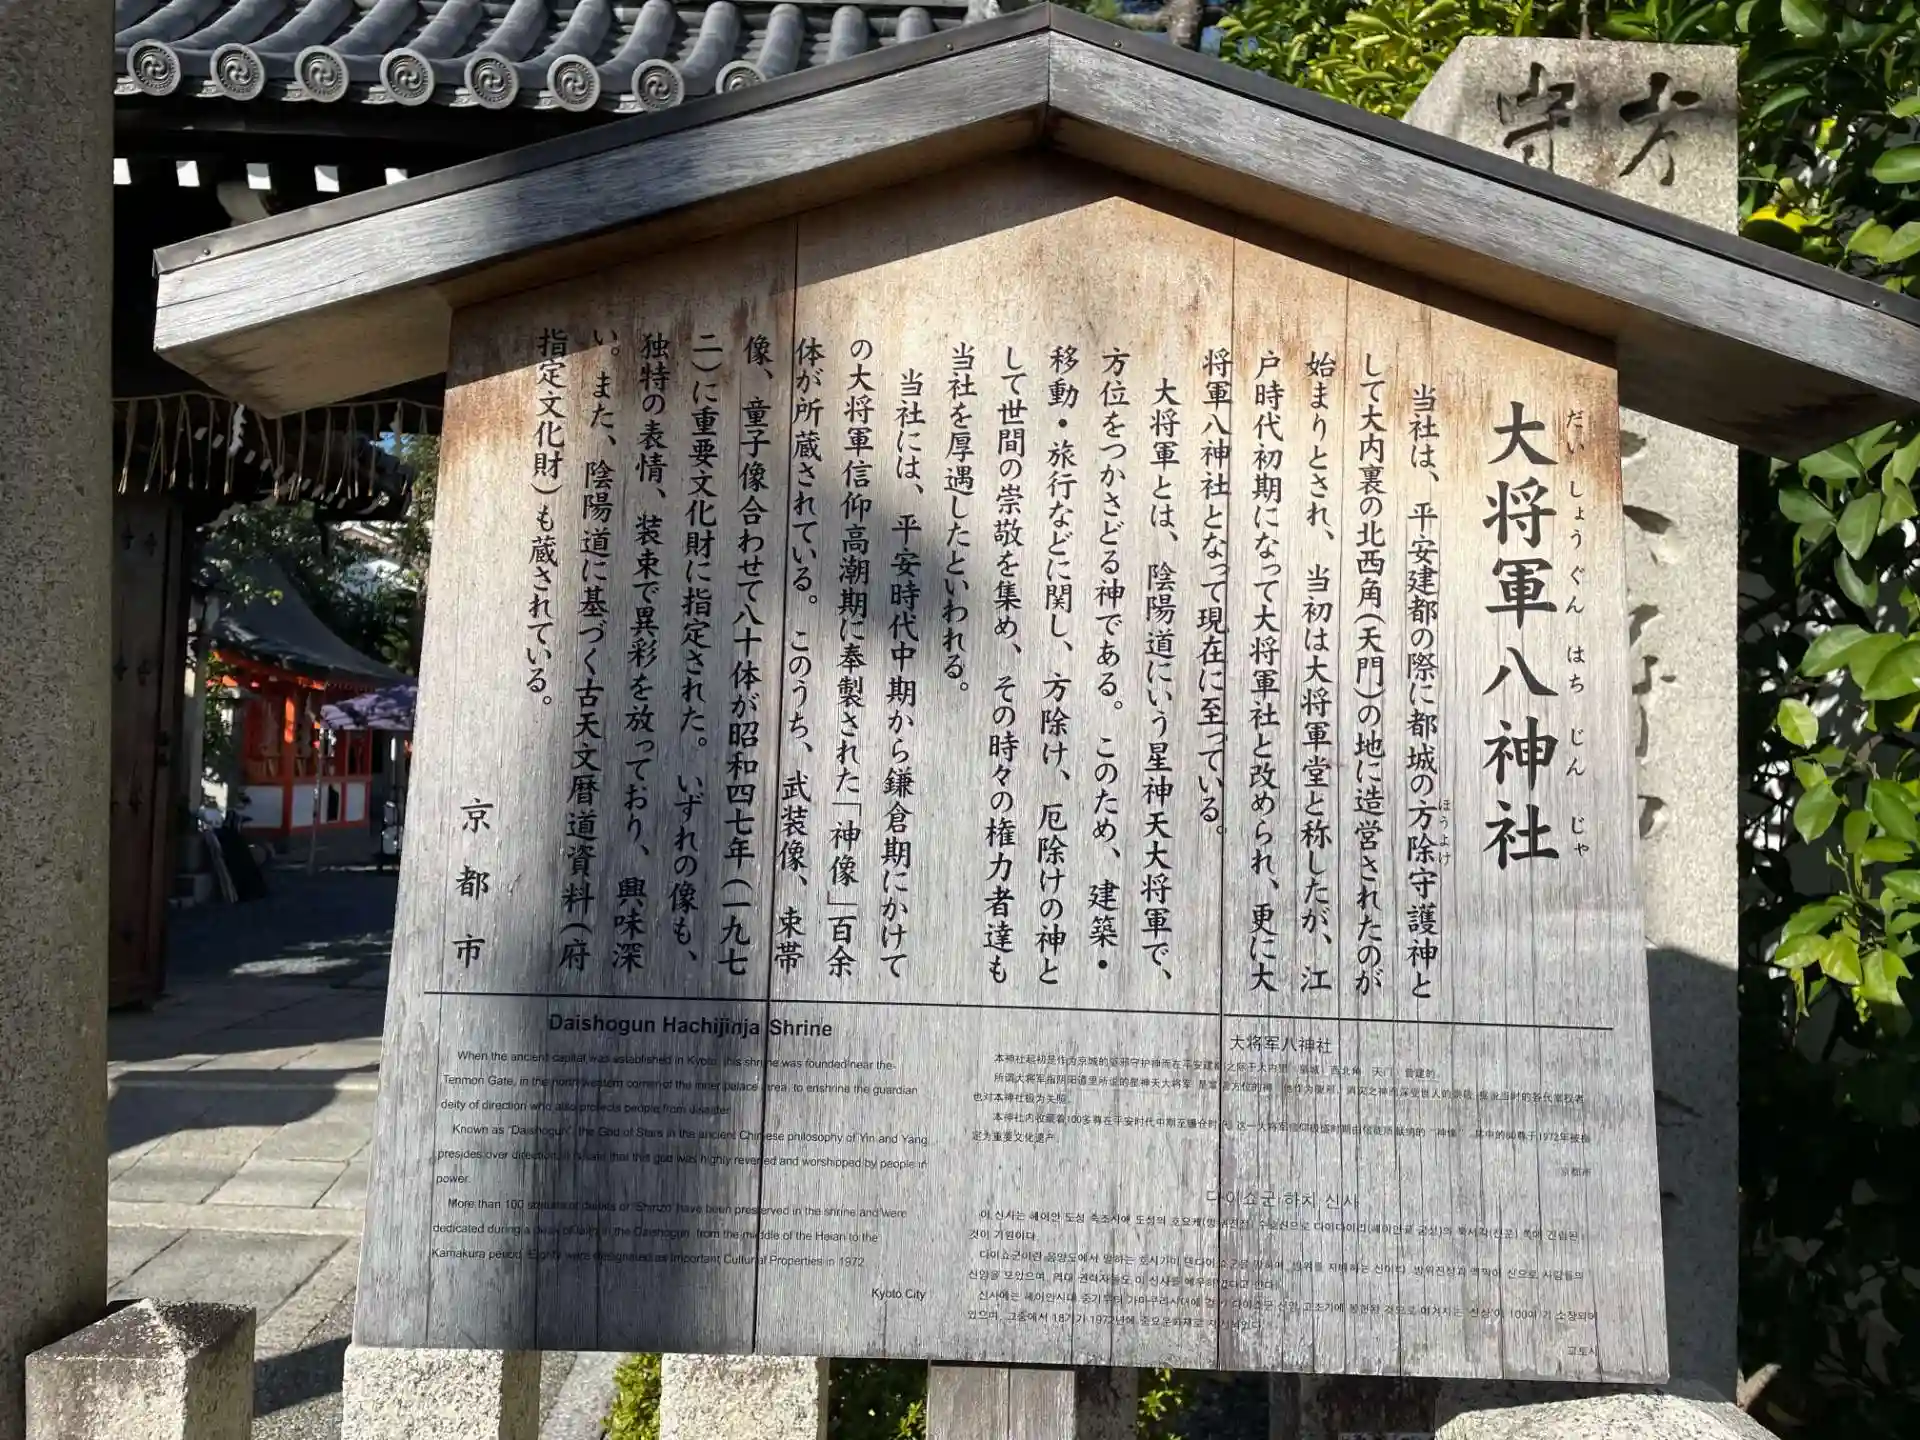 大将軍八神社
だいしょうぐんはちじんじゃ
当社は、平安建都の際に都城の方除守護神と
ほうよけ
して大内裏の北西角(天門)の地に造営されたのが
始まりとされ、当初は大将軍堂と称したが、江
戸時代初期になって大将軍社と改められ、更に大
将軍八神社となって現在に至っている。
大将軍とは、陰陽道にいう星神天大将軍で、
方位をつかさどる神である。このため、建築・
移動・旅行などに関し、方除け、厄除けの神と
して世間の崇敬を集め、その時々の権力者達も
当社を厚遇したといわれる。
当社には、平安時代中期から鎌倉期にかけて
の大将軍信仰高潮期に奉製された「神像」百余
体が所蔵されている。このうち、武装像、束帯
像、童子像合わせて八十体が昭和四七年(一九七
二)に重要文化財に指定された。いずれの像も、
独特の表情、装束で異彩を放っており、興味深
い。また、陰陽道に基づく古天文暦道資料(府
指定文化財)も蔵されている。
京都市
Daishogun Hachijinja Shrine
When the ancient capital was established in Kyoto, this shrine was founded near the
Tenmon Gate, in the northwestern corner of the inner palace area, to enshrine the guardian
deity of direction who also protects people from disaster.
Known as "Daishogun", the God of Stars in the ancient Chinese philosophy of Yin and Yang
presides over direction. It is said that this god was highly revered and worshipped by people in
power.
More than 100 of or "Shinzo" have been preserved in the shrine and were
dedicated during a peak of belief in the Daishogun, from the middle of the Heian to the
Kamakura period. Eighty were designated as Important Cultural Properties in 1972.
Kyoto City
大将军八神社
本神社起初是作为京城的 守护神而在平安建都之际于大内里 西北角 天门 曾建的。
所谓大将军指阴阳道里所说的星神天大将军 是掌管方位的神
也对本神社极为关照。
本神社内收藏着100多尊在平安时代中期至镰仓时代 这一大将军信仰极盛时期由信徒所献纳的"神像" 其中的80尊于1972年被指
定为重要文化遗产。
京都市
다이쇼군 하치 신사
이 신사는 헤이안 도성 축조시에 도성의 호요케 수호신으로 다이다이리(헤이안쿄 궁성)의 북서각(천문) 쪽에 건립된
것이 기원이다.
다이쇼군이란 음양도에서 말하는 호시가미 텐다이쇼군을 말하며, 방위를 지배하는 신이다. 신으로 사람들의
신앙을 모았으며, 역대 권력자들도 이 신사를 예우하였다고 한다.
신사에는 헤이안시대 중기부터 가마쿠라시대에 걸 다이쇼군 신앙 고조기에 봉헌된 것으로 여겨지는 신상이 100여 기 소장되어
있으며, 그중에서 1972년에 중요문화재로 지정되었다.
교토시
方
守